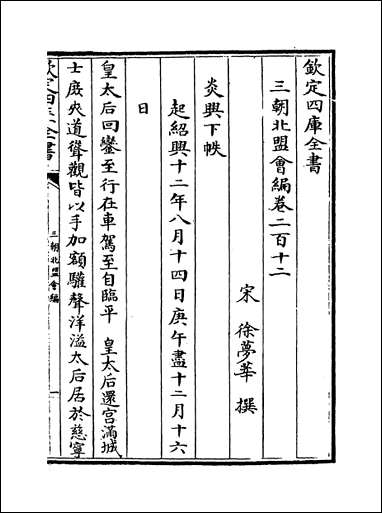 欽定四庫全書
三朝北盟會編卷二百十二
宋 徐夢莘 撰
炎興下帙
起紹興十二年八月十四日庚午盡十二月十六
日
皇太后回鑾至行在車駕至自臨平 皇太后還宫滿城
士庶夾道聳觀皆以手加額驩聲洋溢太后居於慈寧
欽定四庫全書
三朝北盟會編
一